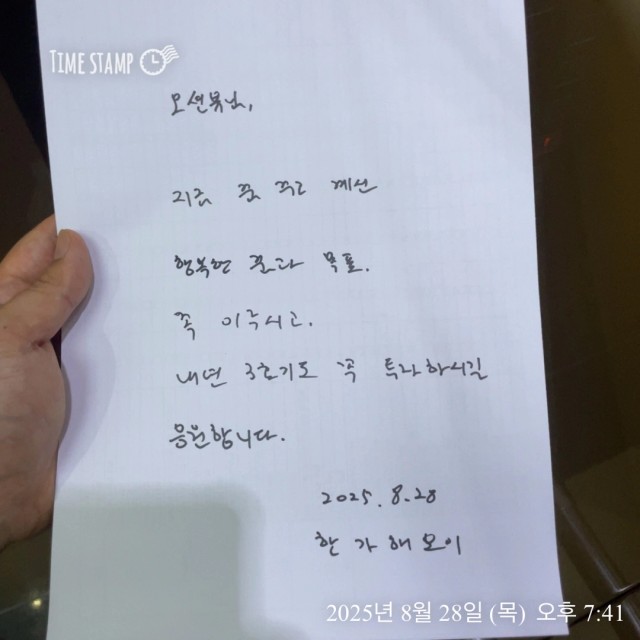 TIME STAMP
오션뷰님,
지금 꿈 꾸고 계신
행복한 꿈과 목표.
꼭 이루시고.
내년 3호기도 꼭 투자하시길
응원합니다.
2025. 8. 28
한가해보이
2025년 8월 28일 (목) 오후 7:41